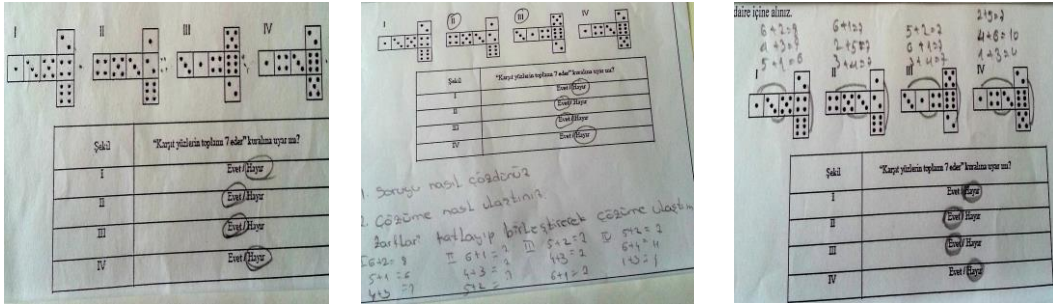 I II III IV
Şekil "Karşıt yüzlerin toplamı 7 eder" kuralına uyar mı?
I Evet / Hayır
II Evet / Hayır
III Evet / Hayır
IV Evet / Hayır
I II III IV
Şekil "Karşıt yüzlerin toplamı 7 eder" kuralına uyar mı?
I Evet / Hayır
II Evet / Hayır
III Evet / Hayır
IV Evet / Hayır
1. Soruyu nasıl çözdünüz
2. Çözüme nasıl ulaştınız.
Zarları katlayıp birleştirerek çözüme ulaştım
I 6+2=8 II 6+1=7 III 5+2=7
5+1=6 4+3=7 4+3=7
4+3=7 5+2= 6+1=7
daire içine alınız.
6+2=8 6+1=7 5+2=7
4+3=7 2+5=7 6+1=7 4+6=10
5+1=6 3+4=7 3+4=7 1+3=4
I II III IV
Şekil "Karşıt yüzlerin toplamı 7 eder" kuralına uyar mı?
I Evet / Hayır
II Evet / Hayır
III Evet / Hayır
IV Evet / Hayır